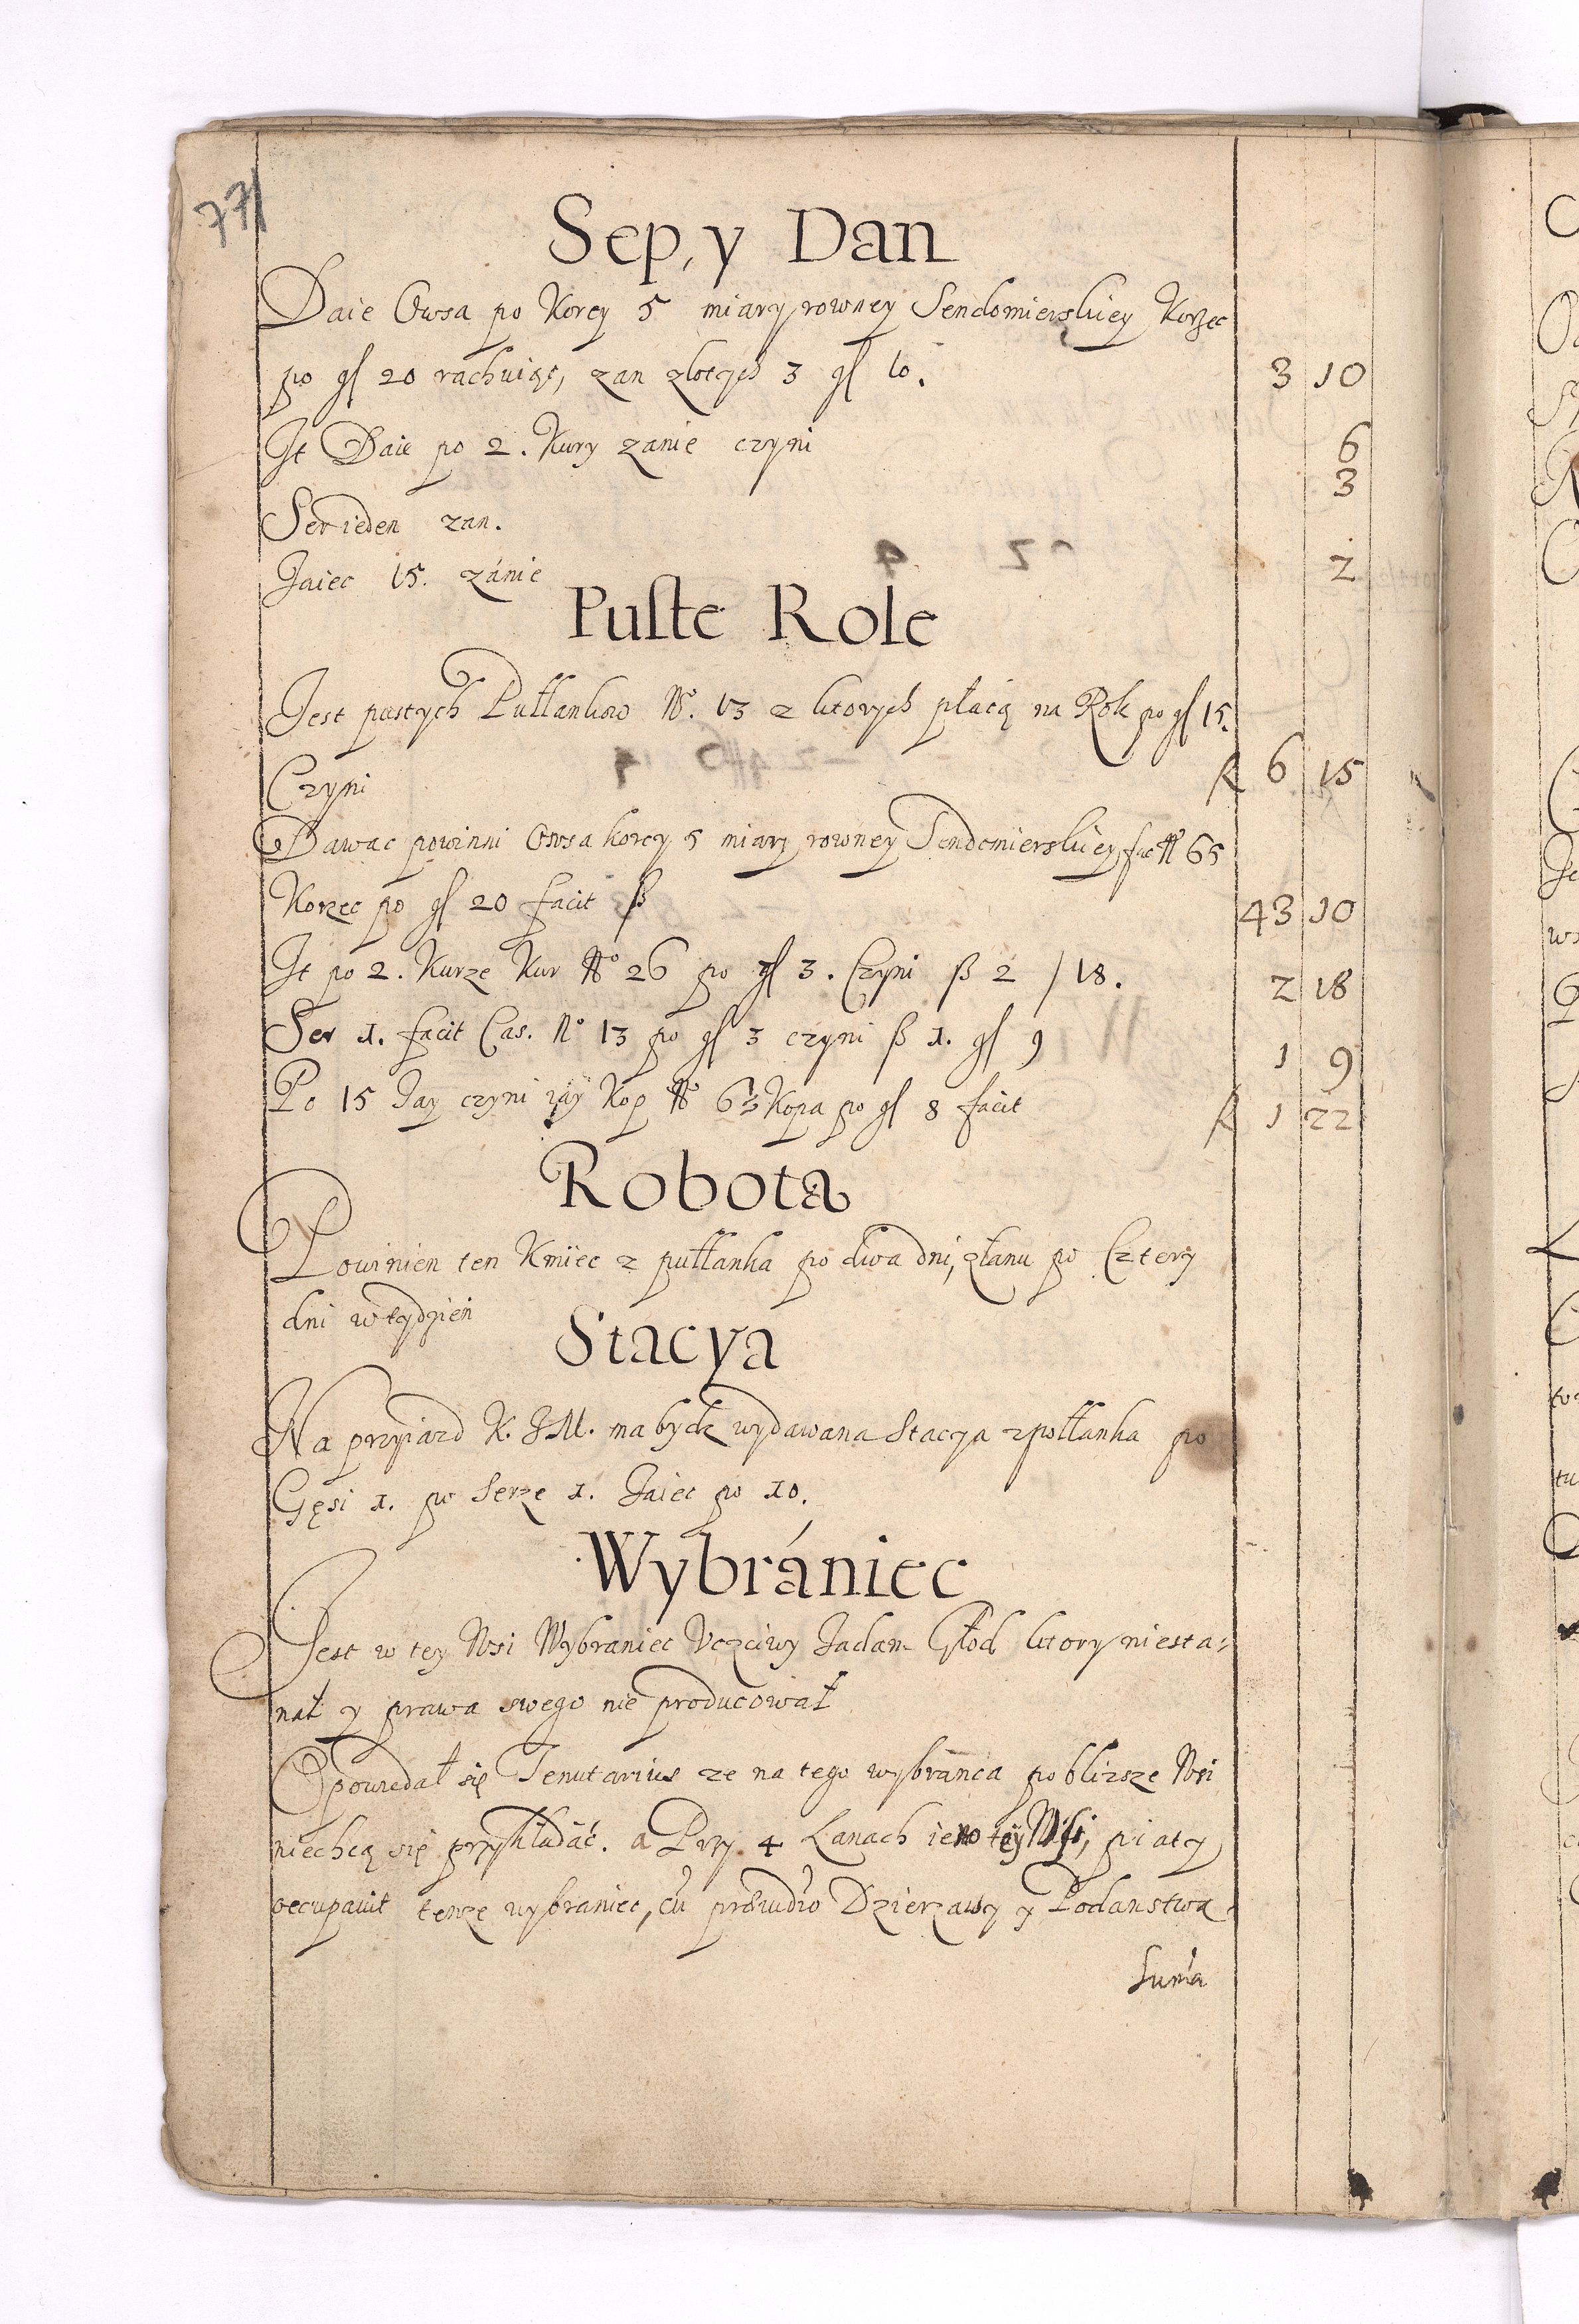 771
Sep, y Dan
Daie Owsa po Korcy 5 miary rowney Sendomierskiey Korzec
po gl 20 rachuiąc, zan złotych 3 gl 10. 3 10
It Daie po 2. Kury zanie czyni 6
Ser ieden zan. 3
Jaiec 15. zánie 2
Puste Role
Jest pustych Pułłankow No. 13 z ktorych płacą na Rok po gl 15.
Czyni 6 15
Dawac powinni Owsa korcy 5 miary rowney Sendomierskiey fac No 65
Korzec po gl 20 facit ß 43 10
It po 2. Kurze Kur No 26 po gl 3. Czyni ß 2 / 18. 2 18
Ser 1. facit Cas. No 13 po gl 3 czyni ß 1. gl 9 1 9
Po 15 Jay czyni iay Kop No 6 Kopa po gl 8 facit 1 22
Robota
Powinien ten Kmiec z pułłanka po dwa dni, złanu po Cztery
dni w tydzień
Stacya
Na przyiazd K. J M. ma bydz wydawana Stacya z połłanka po
Gęsi 1. po Serze 1. Jaiec po 10.
Wybrániec
Jest w tey Wsi Wybraniec Vczciwy Jadam Głod ktory niesta-
nał y prawa swego nie producował
Opowiedał się Tenutarius ze na tego wybrańca pobliższe Wsi
niechcą się przykładać. a Przy 4 Łanach iest w tey Wsi, piaty
occupauit tenze wybraniec, cu Dzierzawy y Podanstwa
Suma